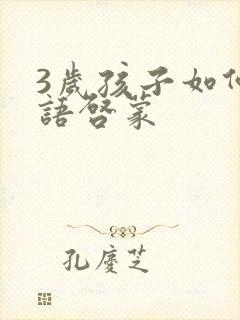 3歲孩子如
語啓蒙
孔慶芝